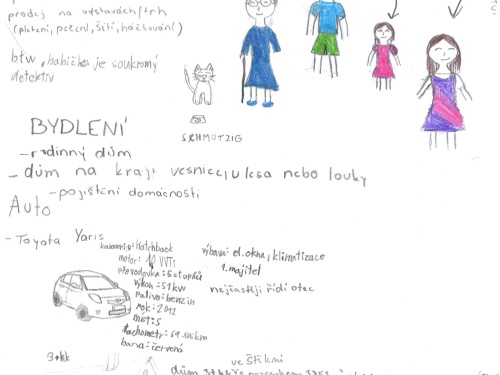 prodej na výstavách/trh
(pletení, pečení, šití, háčkování)
btw, babička je soukromý
detektiv
SCHMUTZIG
BYDLENÍ
- rodinný dům
- dům na kraji vesnice, u lesa nebo louky
- pojištění domácnosti
Auto
- Toyota Yaris
karoserie: hatchback
motor: VVTi
převodovka: 5 stupňů
výkon: 51kW
palivo: benzín
rok: 2012
míst: 5
tachometr: km
barva: červená
výbava: el. okna, klimatizace
1. majitel
nejčastěji řídí otec
3+kk
ve Štíkni
dům 3+kk